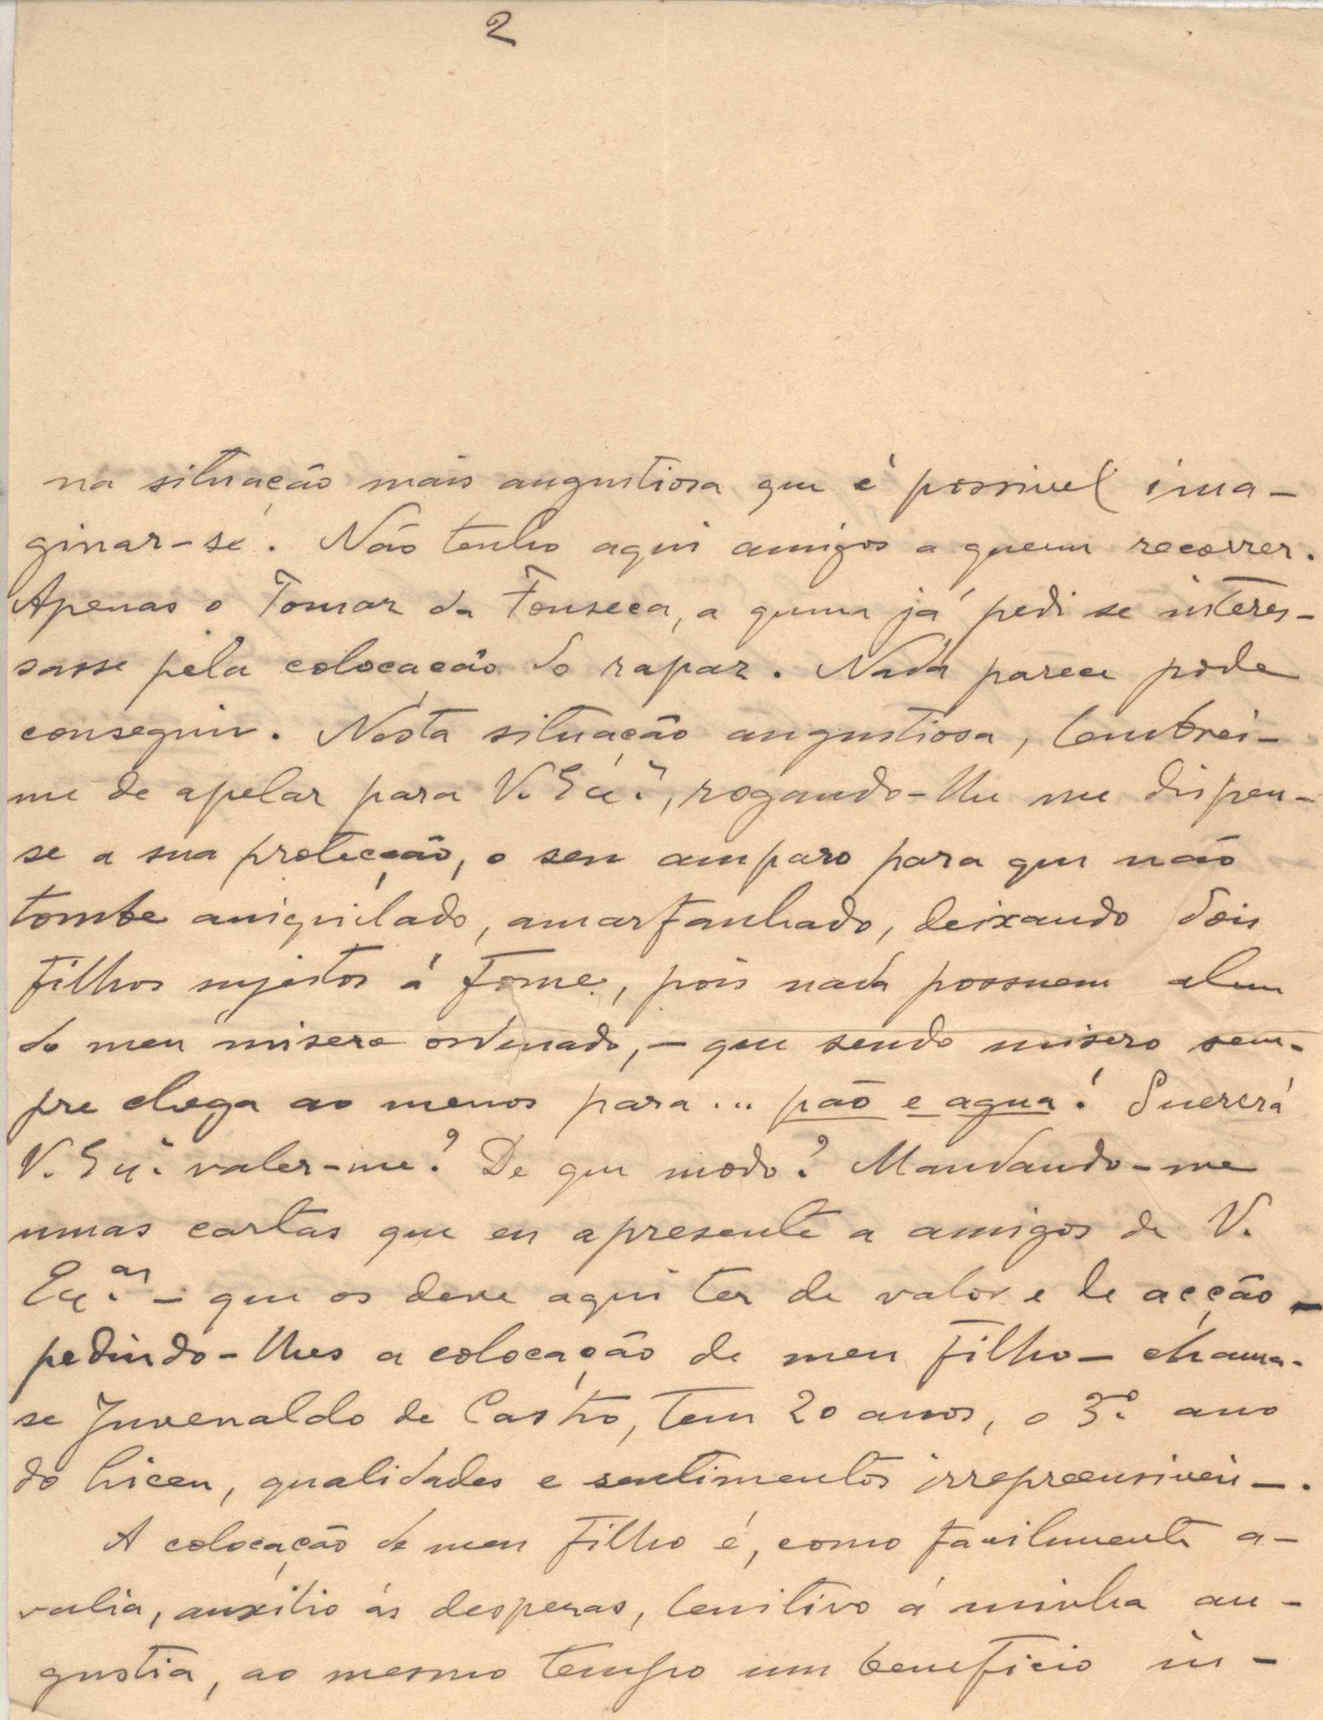 2
na situação mais angustiosa que é possivel ima-
ginar-se. Não tenho aqui amigos a quem recorrer.
Apenas o Tomar da Fonseca, a quem já pedi se interes-
sasse pela colocação do rapaz. Nada parece póde
conseguir. Nesta situação angustiosa, lembrei-
me de apelar para V. Exª., rogando-lhe me dispen-
se a sua protecção, o seu amparo para que não
tombe aniquilado, amarfanhado, deixando dois
filhos sujeitos á fome, pois nada possuem alem
do meu misero ordenado, - que sendo misero sem-
pre chega ao menos para... pão e agua! Quererá
V. Exª. valer-me? De que modo? Mandando-me
umas cartas que eu apresente a amigos de V.
Ex.as - que os deve aqui ter de valor e de acção -
pedindo-lhes a colocação de meu filho - chama-
se Juvenaldo de Castro, tem 20 anos, o 3.º ano
do liceu, qualidades e sentimentos irrepreensiveis -.
A colocação de meu filho é, como facilmente a-
valia, auxilio ás despezas, lenitivo á minha an-
gustia, ao mesmo tempo um beneficio in-